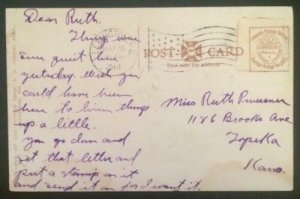 Dear Ruth.
Things were
sure quiet here
yesterday. Wish you
could have been
here to liven things
up a little.
you go down and
get that letter and
put a stamp on it
and send it on for I want it.
POST CARD
Miss Ruth
1186 Brooks Ave
Topeka
Kans.